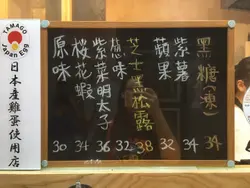 TAMAGO
Japan Egg
日本産雞蛋使用店
原味
桜花蝦
紫菜明太子
葱味
芝士黑松露
蘋果
紫薯
黑糖(凍)
30 34 36 32 38 32 34 34